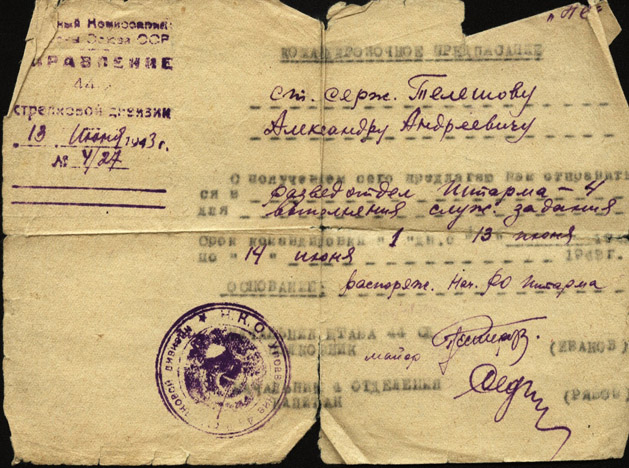 ный Комиссариат
Союза ССР
УПРАВЛЕНИЕ
44
стрелковой дивизии
13 Июня 1943 г.
№ 4/27
КОМАНДИРОВОЧНОЕ ПРЕДПИСАНИЕ
ст. серж. Телешову
Александру Андреевичу
С получением сего предлагаю Вам отправить
ся в разведотдел Штарма-4
для выполнения служ. задания
Срок командировки "1" дн. с 13 июня
по "14" июня 1943г.
ОСНОВАНИЕ: распоряж. Нач. РО Штарма
ШТАБА 44 СД
майор (ИВАНОВ)
4 ОТДЕЛЕНИЯ
КАПИТАН (РЯБОВ)
Н.К.О.